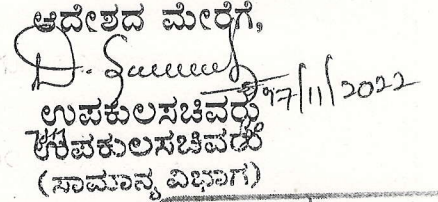 ಆದೇಶದ ಮೇರೆಗೆ,
17/11/2022
ಉಪಕುಲಸಚಿವರು
ಉಪಕುಲಸಚಿವರು
(ಸಾಮಾನ್ಯ ವಿಭಾಗ)